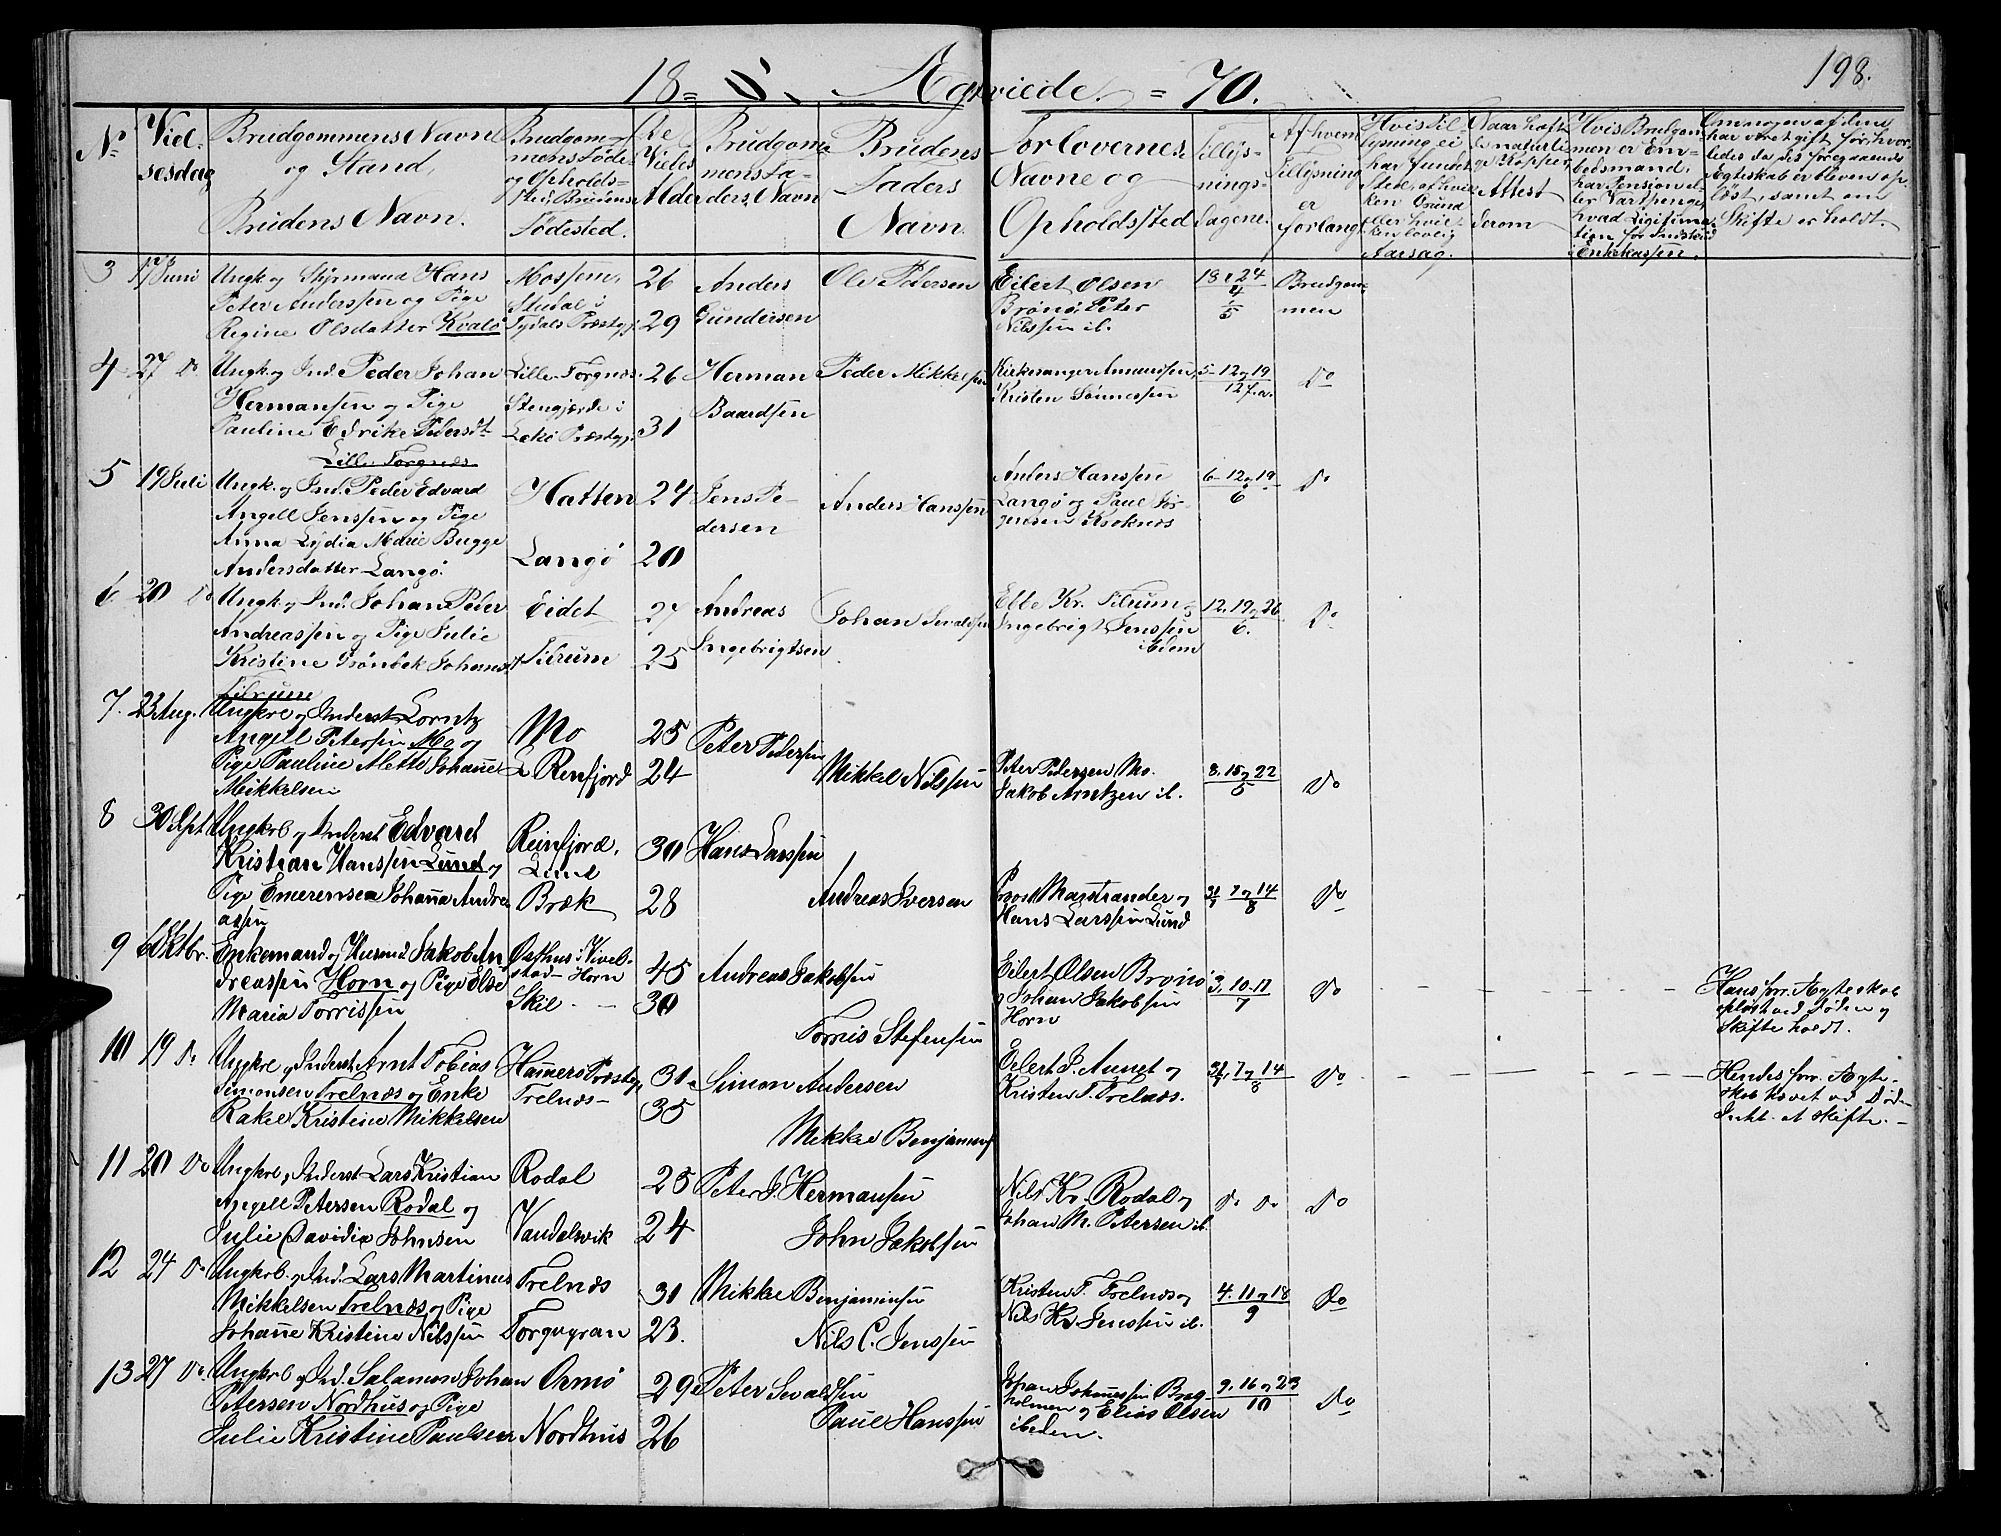 18 = Ægteviede. = 70.
198.
No
Viel-
sesdag
Brudgommens Navn
og Stand,
Brudens Navn.
Brudgom-
mens Føde-
og Opholds-
sted, Brudens
Fødested.
De
Viedes
Alder
Brudgom-
mens Fa-
ders Navn
Brudens
Faders
Navn.
Forlovernes
Navne og
Opholdssted
Tillys-
nings-
Dagene.
Af hvem
Tillysning
er
forlangt
Hvis Til-
lysning ei
har fundet
Sted, af hvil-
ken Grund
eller hvil-
ken lovlig
Aarsag.
Naar havt
de naturli-
ge Kopper,
Attest
derom
Hvis Brudgom-
men er Em-
bedsmand,
har Pension el-
ler Vartpenge,
hvad Legitima-
tion for Indskud
i Enkekassen.
Om nogen af dem
har været gift før, hvor-
ledes da det foregaaende
Ægteskab er bleven op-
løst, samt om
Skifte er holdt.
3 17 Juni Ungk. og Styrmand Hans
Peter Anderssen og Pige
Regine Olsdatter Kvalø
Mossem,
Studal i
Tydals Præstgj.
26
29
Anders
Gundersen
Ole Petersen
Eilert Olsen
Brønø, Peter
Nilssen ib.
18 & 24
4
1
5
Brudgom-
men
4 27 Do Ungk. og Ind. Peder Johan
Hermansen og Pige
Pauline Edrike Pedersdt.
Lille-Torgnæs
Lille-Torgnæs
Stengjørde i
Lekø Præstgj.
26
31
Herman
Baardsen
Peder Mikkelsen
Kirkesanger Amundsen,
Kristen Sønnessen
5-12 og 19
12 f.a.
Do
5 19 Juli Ungk. og Ind. Peder Edvard
Angell Jenssen og Pige
Anna Lydia Marie Bugge
Andersdatter Langø.
Hatten
Langø
24
20
Jens Pe-
dersen
Anders Hanssen
Anders Hanssen
Langø og Paul Jør-
gensen Kroknæs
6-12 og 19
6
Do
6 20 Do Ungk. og Ind. Johan Peder
Andreassen og Pige Julie
Kristine Grønbek Johansd.
Tilrum
Eidet
Tilrum
27
25
Andreas
Ingebrigtsen
Johan Sevaldsen
Ebbe Kr. Tilrum og
Ingebrigt Jenssen
ibidem
12. 19 og 26
6.
Do
7. 23 Aug. Ungkrl og Inderst Lorntz
Angell Peterssen Mo og
Pige Pauline Alette Johanne
Mikkelsen
Mo
L. Renfjord
25
24
Peter Pedersen
Mikkel Nilssen
Peter Pedersen Mo.
Jakob Arntzen ib.
8. 15 og 22
5
Do
8 30 Sept Ungkrl og Inderst Edvard
Kristian Hanssen Lund og
Pige Emerensea Johanna Andre-
assen
Reinfjord,
Lund
Bræk
30
28
Hans Larssen
Andreas Iversen
Provst Marstrander og
Hans Larssen Lund
31 7 og 14
7 8
Do
9 6 Oktbr. Enkemand og Husmd Jakob An-
dreassen Horn og Pige Else
Maria Torrissen
Østhus i Vivel-
stad - Horn
Skil. -
45
30
Andreas Jakobsen
Torris Stefensen
Eilert Olsen Brønø
og Johan Jakobsen
Horn
3. 10. 17
7
Do
Hans forr. Ægteskab
opløst ved Døden og
Skifte holdt.
10 19 Do Ungkrl og Inderst Arnt Tobias
Simonsen Trelnæs og Enke
Rakel Kristine Mikkelsen
Hamers Præstgj.
Trelnæs -
31.
35
Simon Andersen
Mikkel Benjaminsen
Eilert J. Aunet og
Kristen T. Trelnæs.
31. 7 og 14
7 8
Do
Hendes forr. Ægte-
skab hævet ved Døde-
Intet at skifte. -
11 20 Do Ungkrl og Inderst Lars Kristian
Angell Petersen Rodal og
Julie Davidia Johnsen
Rodal
Vandalsvik
25
24
Peter J. Hermansen
John Jakobsen
Nils Kr. Rodal og
Johan M. Petersen ib.
Do Do
Do
12 24 Do Ungkrl og Ind. Lars Martinus
Mikkelsen Trelnæs og Pige
Johanne Kristine Nilssen
Trelnæs
Torgvgran
31
23.
Mikkel Benjaminsen
Nils C. Jenssen
Kristen T. Trelnæs og
Nils Kr. Jenssen ib.
4. 11 og 18
9
Do
13 27 Do Ungkrl og Ind. Salamon Johan
Petersen Nordhus og Pige
Julie Kristine Paulsen
Ormø
Nordhus
29
26
Peter Sevaldsen
Paul Hanssen
Johan Johannessen Bræg-
holmen og Elias Olsen
ibidem.
9. 16 og 23
10
Do